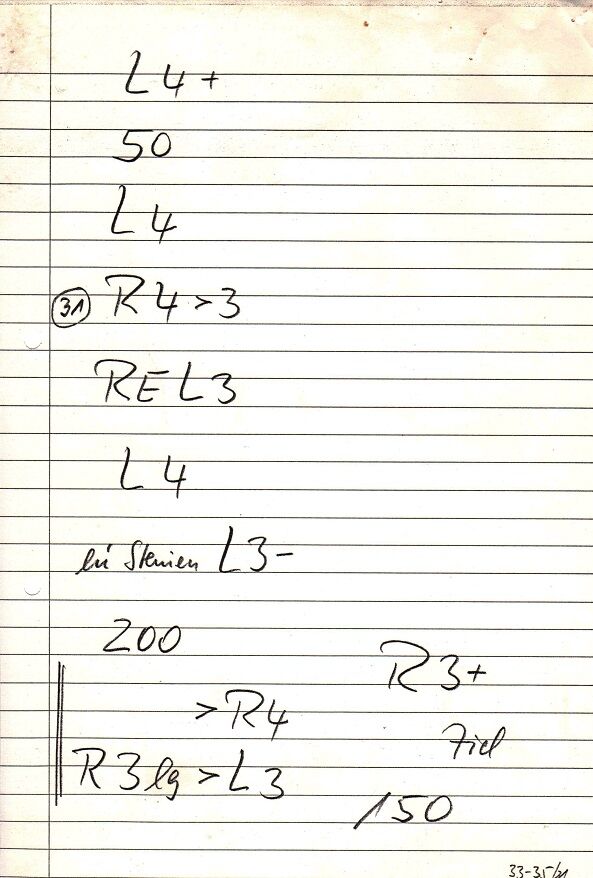 L4+
50
L4
31 R4>3
REL3
L4
bei Steinen L3-
200
>R4
R3lg>L3
R3+
Ziel
150
33-35/21